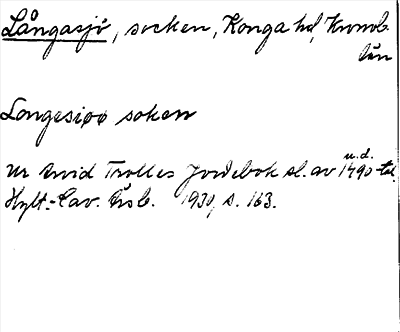 Långasjö, socken, Konga hd, Kronob.
län
Longesiøø soken
u.d.
Ur Arvid Trolles Jordebok sl. av 1490-tal.
Hylt.-Cav. Årsb. 1930, s. 163.